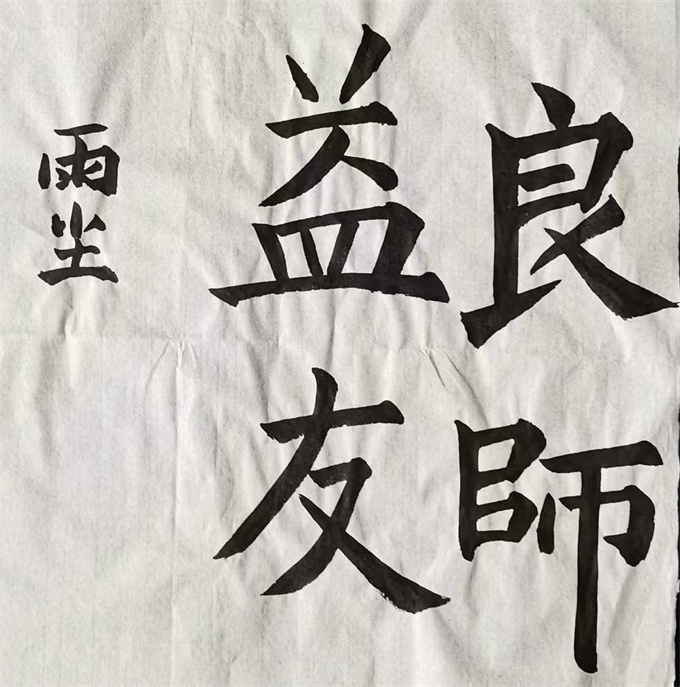 良師
益友
雨尘